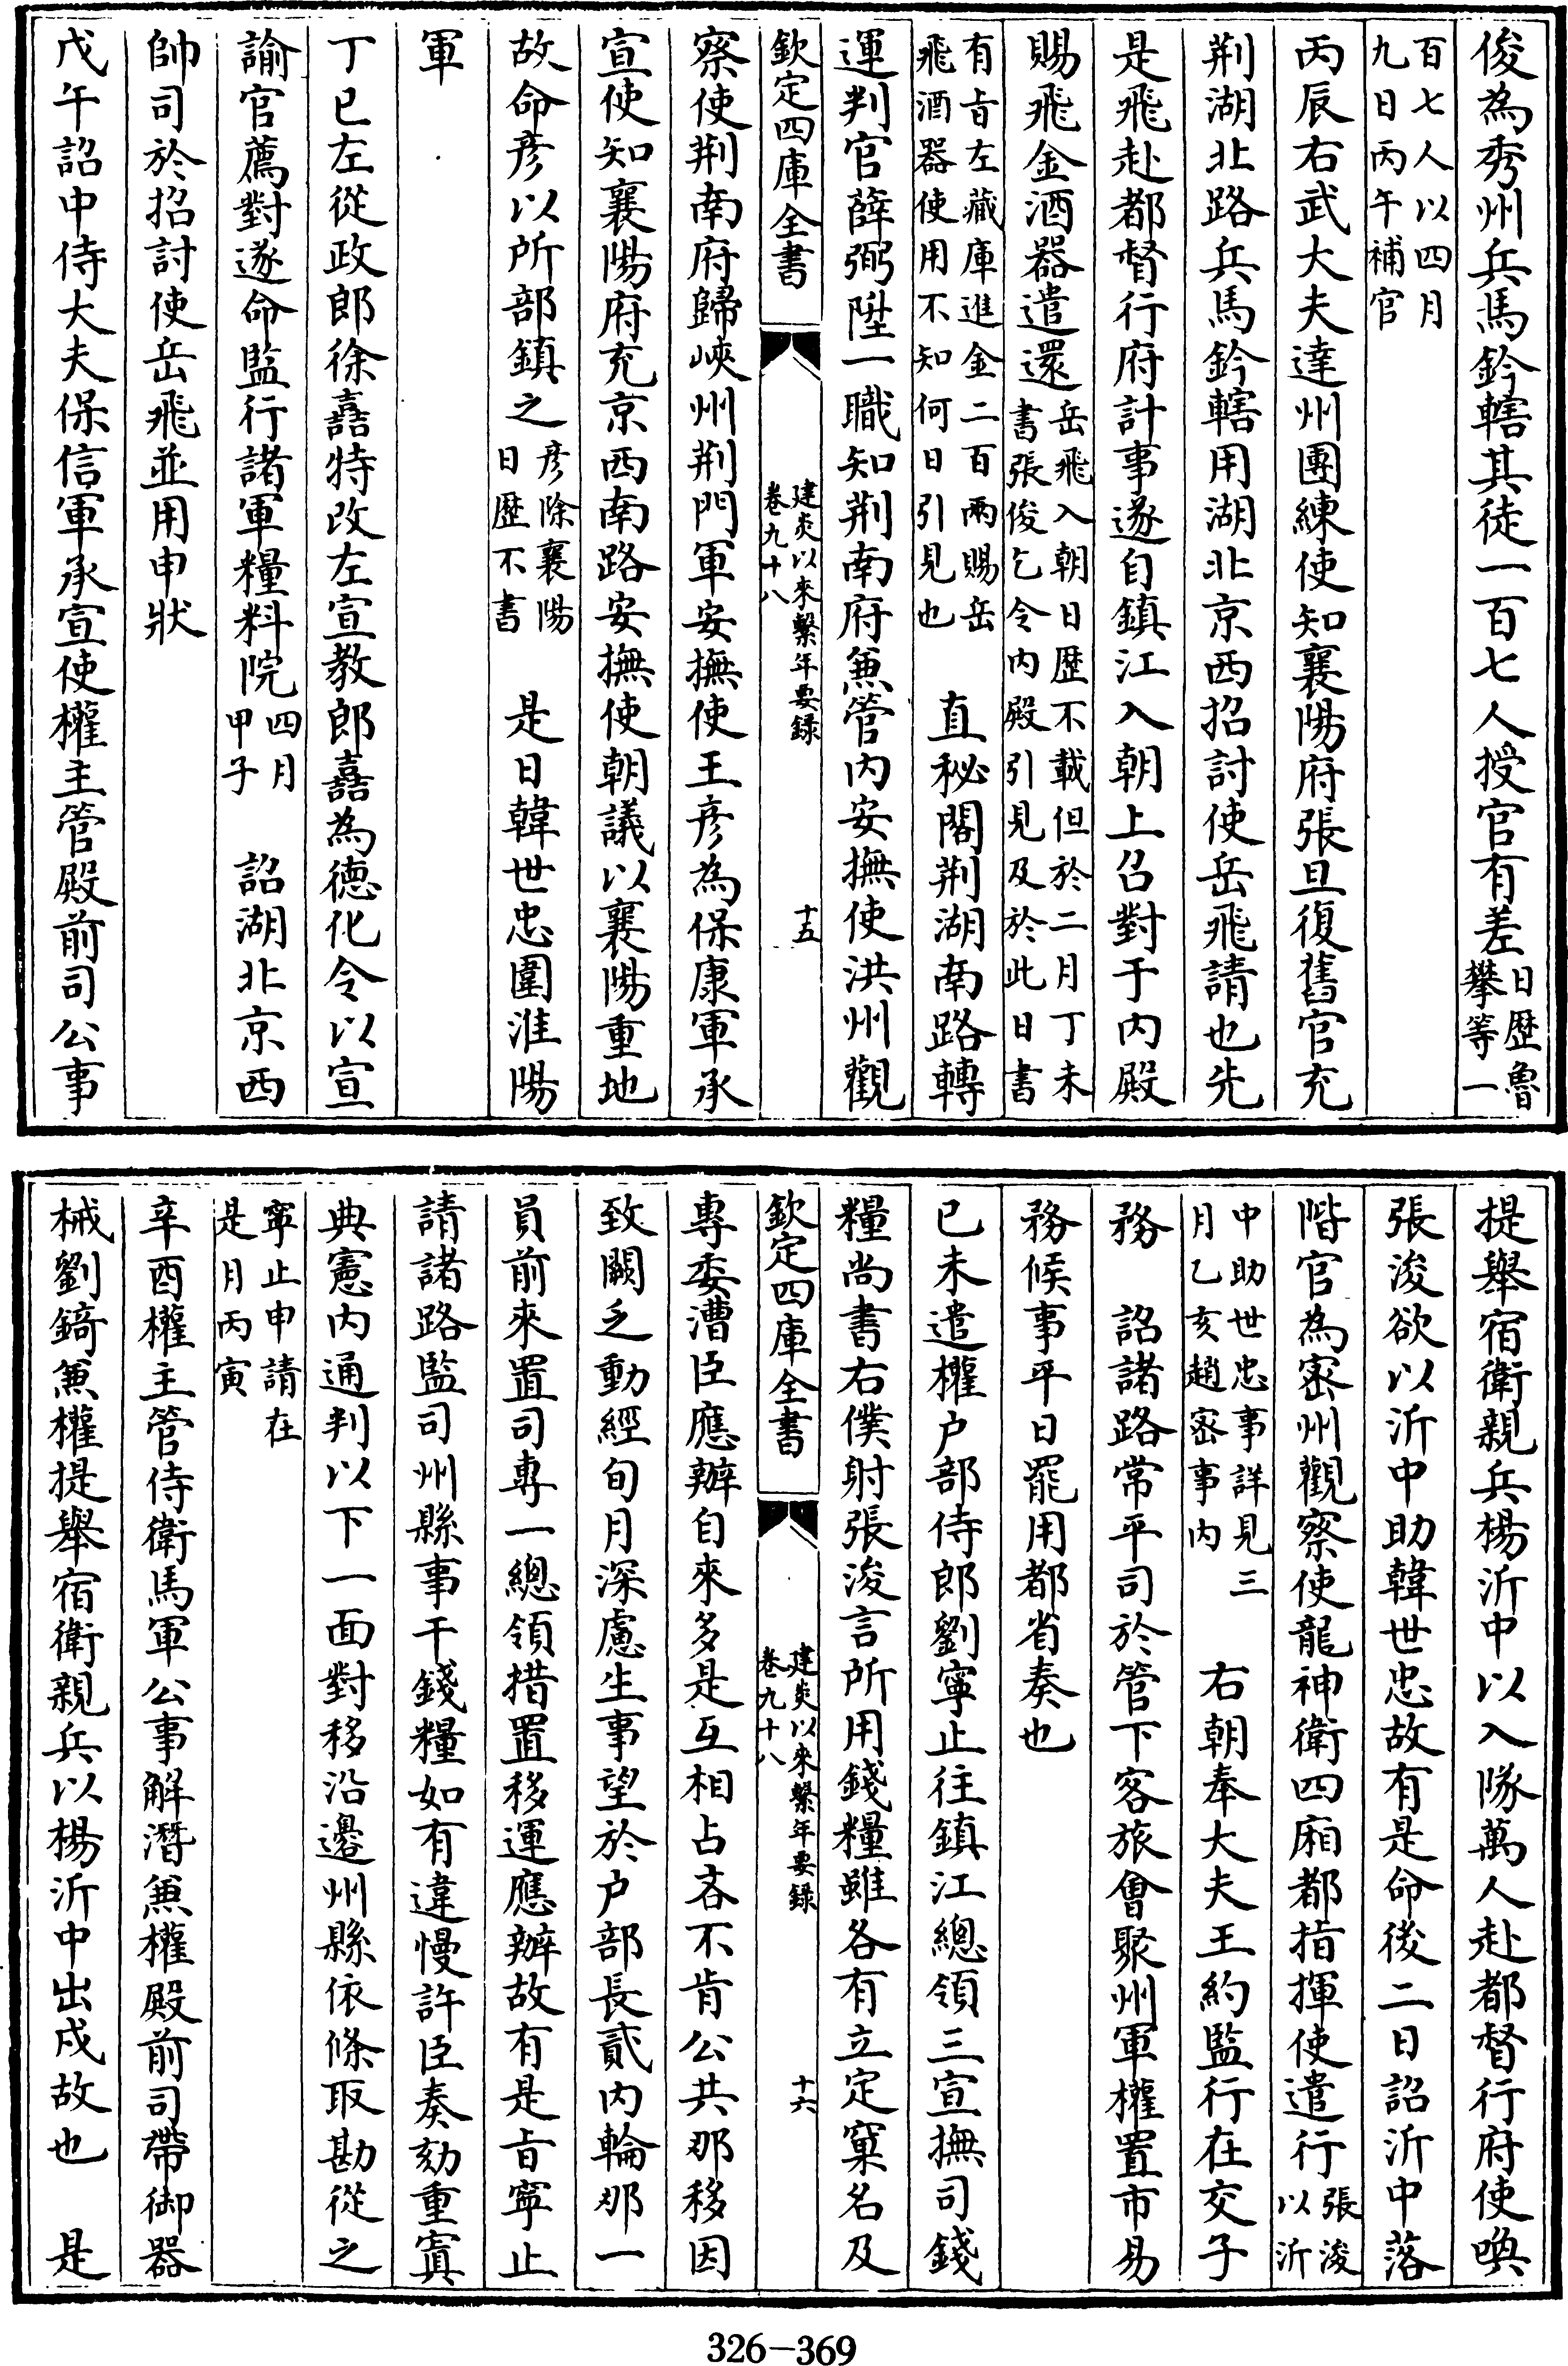 俊為秀州兵馬鈐轄其徒一百七人授官有差日歴魯攀等一
百七人以四月九日丙午補官
丙辰右武大夫達州團練使知襄陽府張旦復舊官充
荆湖北路兵馬鈐轄用湖北京西招討使岳飛請也先
是飛赴都督行府計事遂自鎮江入朝上召對于内殿
賜飛金酒器遣還岳飛入朝日歴不載但於二月丁未書張俊乞令内殿引見及於此日書
有旨左藏庫進金二百兩賜岳飛酒器使用不知何日引見也　直秘閣荆湖南路轉
運判官薛弼陞一職知荆南府兼管内安撫使洪州觀
欽定四庫全書　建炎以來繫年要録卷九十八　十五
察使荆南府歸峽州荆門軍安撫使王彦為保康軍承
宣使知襄陽府充京西南路安撫使朝議以襄陽重地
故命彦以所部鎮之彦除襄陽日歴不書　是日韓世忠圍淮陽
軍
丁巳左從政郎徐嚞特改左宣教郎嚞為德化令以宣
諭官薦對遂命監行諸軍糧料院四月甲子　詔湖北京西
帥司於招討使岳飛並用申狀
戊午詔中侍大夫保信軍承宣使權主管殿前司公事
提舉宿衛親兵楊沂中以入隊萬人赴都督行府使喚
張浚欲以沂中助韓世忠故有是命後二日詔沂中落
階官為密州觀察使龍神衛四廂都指揮使遣行張浚以沂
中助世忠事詳見三月乙亥趙密事内　右朝奉大夫王約監行在交子
務　詔諸路常平司於管下客旅會聚州軍權置市易
務候事平日罷用都省奏也
已未遣權户部侍郎劉寧止往鎮江總領三宣撫司錢
糧尚書右僕射張浚言所用錢糧雖各有立定窠名及
欽定四庫全書　建炎以來繫年要録卷九十八　十六
專委漕臣應辦自來多是互相占吝不肯公共那移因
致闕乏動經旬月深慮生事望於户部長貳内輪那一
員前來置司專一總領措置移運應辦故有是旨寧止
請諸路監司州縣事干錢糧如有違慢許臣奏劾重寘
典憲内通判以下一面對移沿邊州縣依條取勘從之
寧止申請在是月丙寅
辛酉權主管侍衛馬軍公事解潛兼權殿前司帶御器
械劉錡兼權提舉宿衛親兵以楊沂中出戍故也　是
326-369